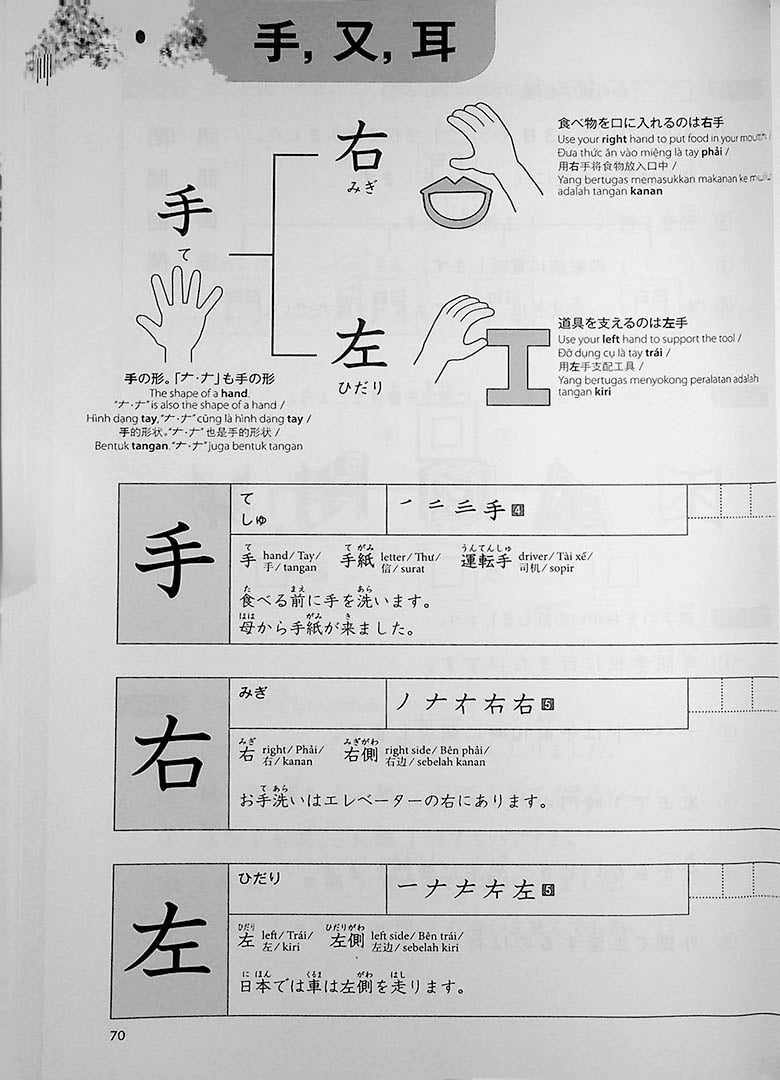 手, 又, 耳
右
みぎ
食べ物を口に入れるのは右手
Use your right hand to put food in your mouth /
Đưa thức ăn vào miệng là tay phải /
用右手将食物放入口中 /
Yang bertugas memasukkan makanan ke mulut
adalah tangan kanan
手
て
手の形。「ナ・ナ」も手の形
The shape of a hand.
"ナ・ナ" is also the shape of a hand /
Hình dạng tay, "ナ・ナ" cũng là hình dạng tay /
手的形状。"ナ・ナ" 也是手的形状 /
Bentuk tangan. "ナ・ナ" juga bentuk tangan
左
ひだり
道具を支えるのは左手
Use your left hand to support the tool /
Đỡ dụng cụ là tay trái /
用左手支配工具 /
Yang bertugas menyokong peralatan adalah
tangan kiri
手
て
しゅ
手 4
て てがみ うんてんしゅ
手 hand/ Tay/ 手/ tangan 手紙 letter/ Thư/ 信/ surat 運転手 driver/ Tài xế/ 司机/ sopir
た まえ あら
食べる前に手を洗います。
はは がみ き
母から手紙が来ました。
右
みぎ
ノ ナ 右 5
みぎ みぎがわ
右 right/ Phải/ 右/ kanan 右側 right side/ Bên phải/ 右边/ sebelah kanan
て あら
お手洗いはエレベーターの右にあります。
左
ひだり
一 ナ 左 5
ひだり ひだりがわ
左 left/ Trái/ 左/ kiri 左側 left side/ Bên trái/ 左边/ sebelah kiri
に ほん くるま がわ はし
日本では車は左側を走ります。
70